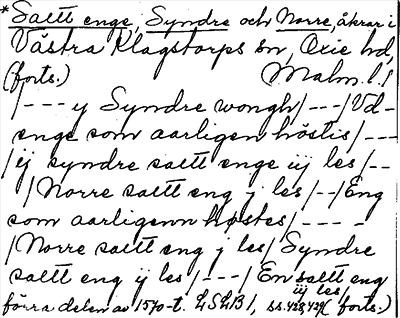 *Saltt enge, Syndre och Norre, åkrar i
Västra Klagstorps sn, Oxie hd,
(forts.) Malm. l.
/---y Syndre wongh/---/Ud-
enge som aarligen höstis/---
/ij syndre saltt enge iij les/--
/Norre saltt eng j les/--/Eng
som aarligenn høstes/----
/Norre saltt eng j les/Syndre
saltt eng ij les/---/En saltt eng
iij les/
förra delen av 1570-t. LSLB 1, ss. 428, 429 (forts.)